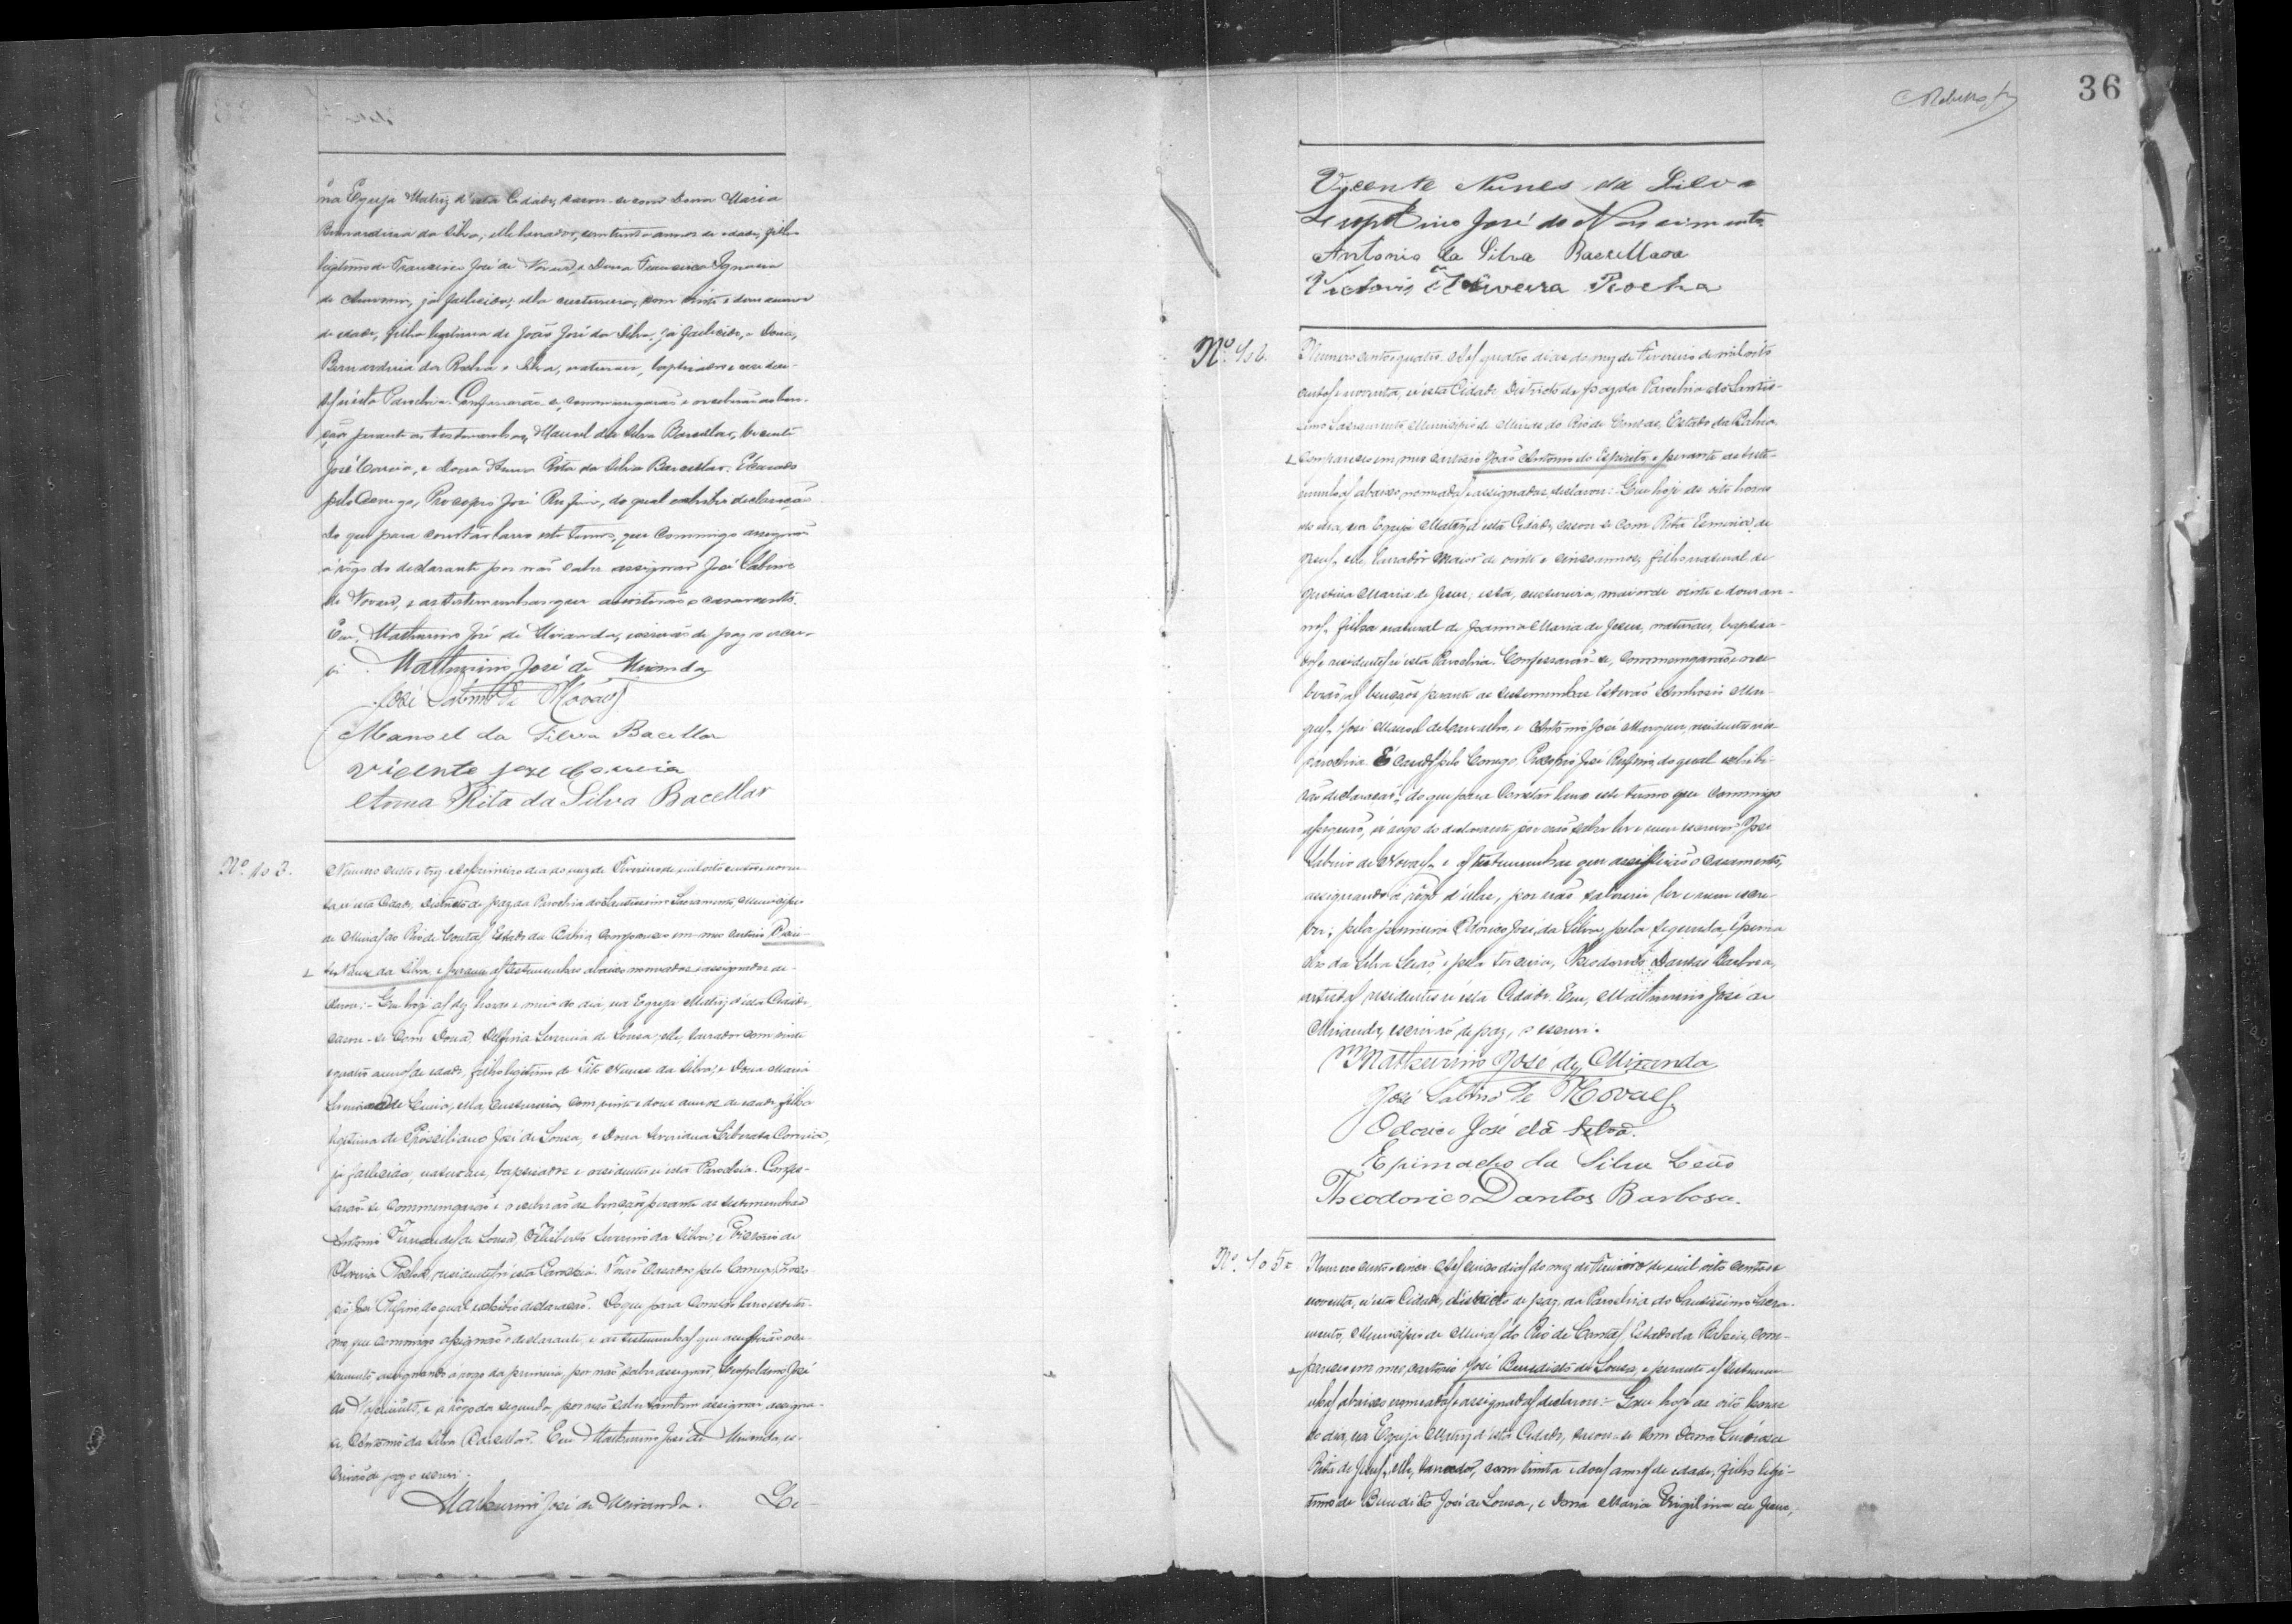 na Egreja Matriz d'esta Cidade, casou-se com Dona Maria
Bernardina da Silva, elle lavrador, com trinta annos de edade, filho
legitimo de Francisco José de Novaes, e Dona Francisca Ignacia
de já fallecida, ella costureira, com vinte e dous annos
de edade, filha legitima de João José da Silva, já fallecido, e Dona
Bernardina da Rocha e Silva, naturaes, baptisados e residen-
tes n'esta Parochia. Confessarão-se, commungarão e receberão as ben-
çãos perante as testemunhas, Manoel da Silva Bacellar, Vicente
José Correia, e Dona Anna Rita da Silva Bacellar. E casado
pelo Conego, Procopio José Rufino, do qual exhibio declaração
do que para constar lavro este termo, que commigo assignão
á rogo do declarante por não saber assignar José Sabino
de Novaes, e as testemunhas que assistirão o casamento.
Eu, Mathurino José de Miranda, escrivão de paz o escre-
vi. Mathurino José de Miranda
José Sabino de Novaes
Manoel da Silva Bacellar
Vicente Joze Correia
Anna Rita da Silva Bacellar
Nº 103.
Numero cento e trez. Ao primeiro dia do mez de Fevereiro de mil oito centos e noven-
ta, n'esta Cidade, Districto de paz da Parochia do Santissimo Sacramento, Municipio
de Minas do Rio de Contas, Estado da Bahia, compareceo em meo cartorio Vicen-
te Nunes da Silva, e perante as testemunhas abaixo nomeadas e assignadas de-
clarou: - Que hoje as dez horas e meia do dia, na Egreja Matriz d'esta Cidade,
casou-se com Dona Delfina de Sousa, elle, lavrador com vinte
e quatro annos de edade, filho legitimo de Tito Nunes da Silva, e Dona Maria
ella, costureira, com vinte e dous annos de edade, filha
legitima de José de Sousa, e Dona Liberata Correia,
já fallecida, naturaes, baptisados e residentes n'esta Parochia. Confes-
sarão-se commungarão e receberão as bençãos perante as testemunhas
Antonio Fernandes de Sousa, Filiberto Severino da Silva, e Victorio de
Oliveira Rocha, residentes n'esta Parochia. Forão casados pelo Conego, Proco-
pio José Rufino, do qual exhibio declaração. Do que para constar lavro este ter-
mo que commigo assignão o declarante, e as testemunhas que assistirão o ca-
samento assignando á rogo da primeira, por não saber assignar, Leopoldino José
do Nascimento, e á rogo da segunda, por não saber tambem assignar, assigna-
se, Antonio da Silva Bacellar. Eu Mathurino José de Miranda, es-
crivão de paz o escrevi.
Mathurino José de Miranda. Vi-
36
Vicente Nunes da Silva
Leopoldino José do Nascimento
Antonio da Silva Bacellar
Victorio de Oliveira Rocha
Nº 104.
Numero cento e quatro. Aos quatro dias do mez de Fevereiro de mil oito
centos e noventa, n'esta Cidade Districto de paz da Parochia do Santis-
simo Sacramento, Municipio de Minas do Rio de Contas, Estado da Bahia,
compareceo em meo cartorio João Antonio do Espirito, e perante as teste-
munhas abaixo nomeadas e assignadas, declarou: Que hoje as oito horas
do dia, na Egreja Matriz d'esta Cidade, casou-se com Rita de
Jesus, elle, lavrador maior de vinte e cinco annos, filho natural de
Maria de Jesus, esta, costureira, maior de vinte e dous an-
nos, filha natural de Joanna Maria de Jesus, naturaes, baptisa-
dos e residentes n'esta Parochia. Confessarão-se, commungarão, e rece-
berão as bençãos perante as testemunhas Estevão Ambrosio Mar-
ques, José Manoel de Carvalho, e Antonio José Marques, residentes na
parochia. E casados pelo Conego, Procopio José Rufino, do qual exhibi-
rão declaração; do que para constar lavro este termo que commigo
assignão, á rogo do declarante por não saber ler e nem escrever José
Sabino de Novaes, e as testemunhas que assistirão o casamento,
assignando á rogo d'ellas, por não saberem ler e nem escre-
ver; pela primeira Odorico José da Silva, pela segunda, Epima-
cho da Silva Leão, e pela terceira, Theodorico Dantas Barbosa,
artistas residentes n'esta Cidade. Eu, Mathurino José de
Miranda, escrivão de paz, o escrevi.
Mathurino José de Miranda
José Sabino de Novaes
Odorico José da Silva.
Epimacho da Silva Leão
Theodorico Dantas Barbosa.
Nº 105=
Numero cento e cinco. Aos cinco dias do mez de Fevereiro de mil oito centos e
noventa, n'esta Cidade, districto de paz, da Parochia do Santissimo Sacra-
mento, Municipio de Minas do Rio de Contas, Estado da Bahia, com-
pareceo em meo cartorio José Benedicto de Sousa, e perante as testemu-
nhas abaixo nomeadas e assignadas declarou: - Que hoje as oito horas
do dia, na Egreja Matriz d'esta Cidade, casou-se com Dona
Rita de Jesus, elle, lavrador, com trinta e dous annos de edade, filho legi-
timo de Benedicto José de Sousa, e Dona Maria Virgilina de Jesus,